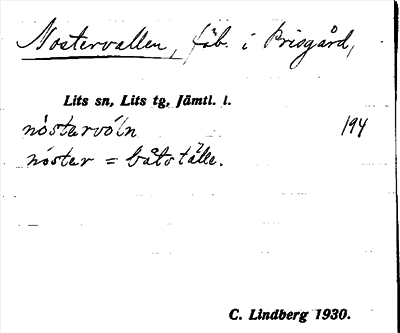 Nostervallen, fäb. i Brisgård,
Lits sn, Lits tg, Jämtl. l.
nòstervóln 194
nòster = båtställe.
C. Lindberg 1930.